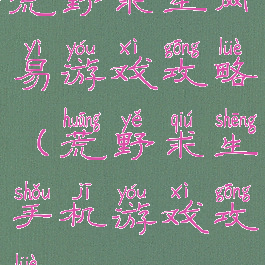 荒野求生
yì yóu xì gōng lüè
易游戏攻略
huāng yě qiú shēng
（荒野求生
shǒu jī yóu xì gōng
手机游戏攻
lüè